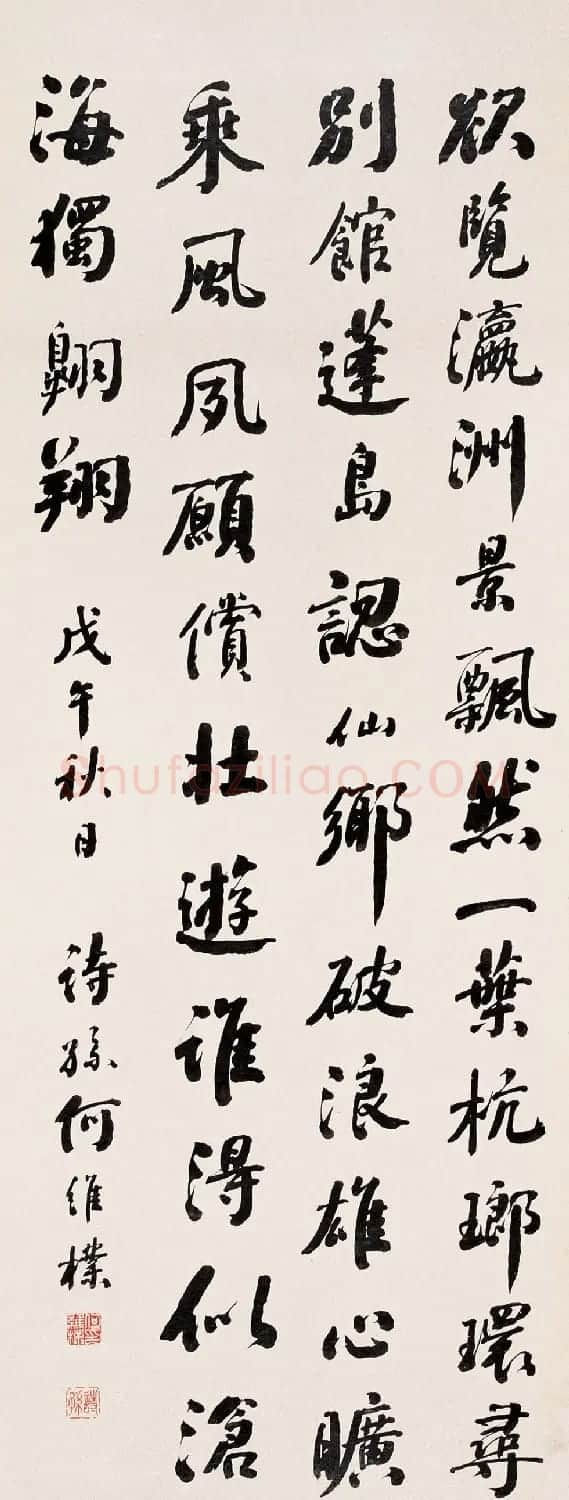 欲覽瀛洲景飄然一葉杭瑯環尋
別館蓬島認仙鄉破浪雄心曠
乘風夙願償壯遊誰得似滄
海獨翺翔
戊午秋日 詩孫何維樸
Shufaziliao.COM